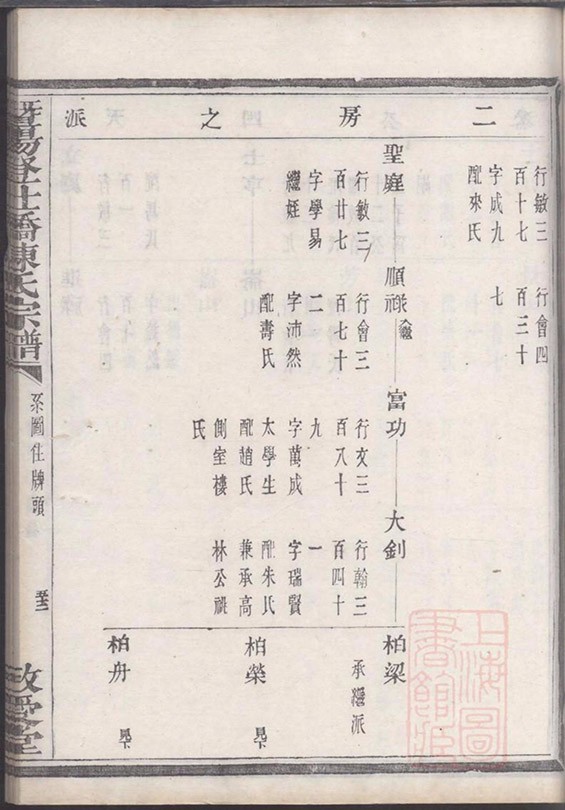 二房之派
行敏三
百十七
字成九
配來氏
行會四
百三十
七
聖庭
行敏三
百廿七
字學易
繼姪
順祿
入繼
行會三
百七十
二
字沛然
配壽氏
富功
行文三
百八十
九
字萬成
太學生
配趙氏
側室樓
氏
大釗
行翰三
百四十
一
字瑞賢
配朱氏
兼承高
林公祀
柏梁
承繼派
柏榮
見下
柏舟
見下
暨陽
仕橋陳氏宗譜
系圖住牌頭
敬愛堂
上海圖書館藏